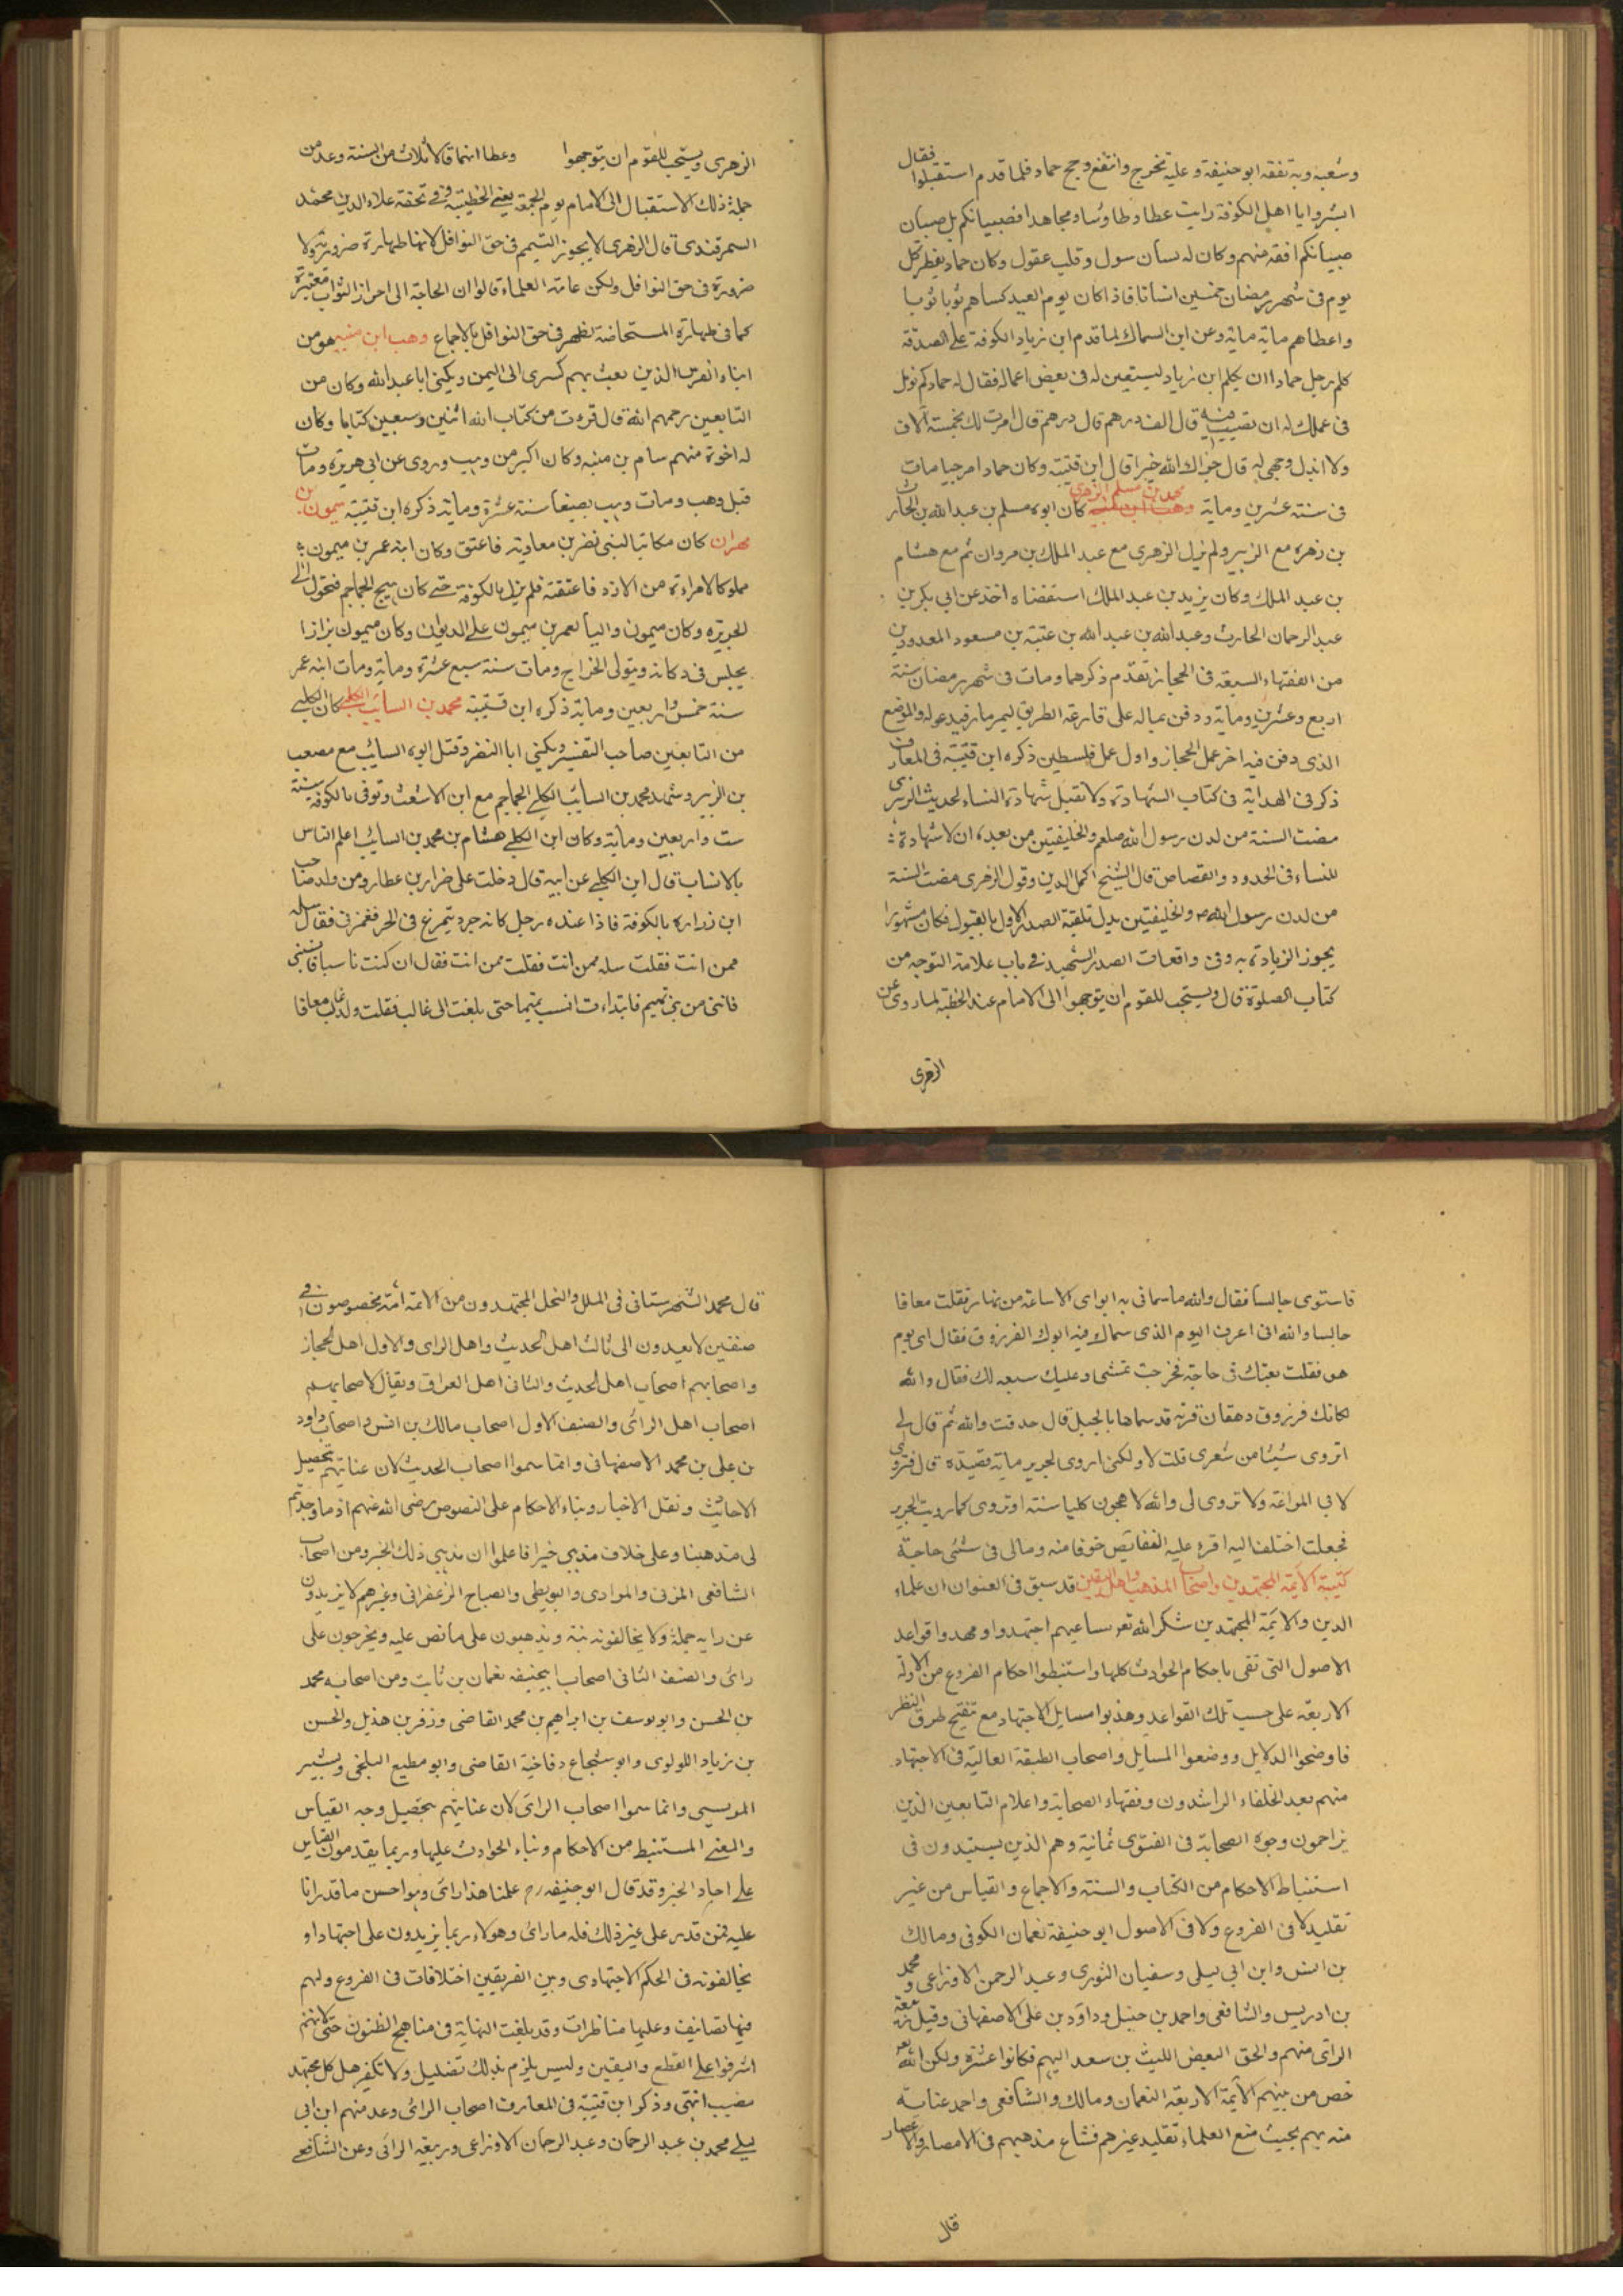 وشعبة وبه تفقه ابو حنيفة وعليه تخرج وانتفع وحج حماد فلما قدم استقبلوا فقال
ابشروا يا اهل الكوفة رايت عطا وطاوسا ومجاهدا فصبيانكم بل صبيان
صبيانكم افقه منهم وكان له لسان سول وقلب عقول وكان حماد يفطر كل
يوم في شهر رمضان خمسين انسانا فاذا كان يوم العيد كساهم ثوبا ثوبا
واعطاهم ماية ماية وعن ابن السماك لما قدم ابن زياد الكوفة على الصدقة
كلم رجل حمادا ان يكلم ابن زياد ليستعين له في بعض اعماله فقال له حماد كم تومل
في عملك له ان تصيب فيه قال الف درهم قال درهم قال امرت لك بخمسة آلاف
ولا ابذل وجهي له قال جزاك الله خيرا قال ابن قتيبة وكان حماد امرجيا مات
في سنة عشرين وماية محمد بن مسلم الزهري كان ابوه مسلم بن عبد الله بن الحارث
بن زهرة مع الزبير ولم يزل الزهرى مع عبد الملك بن مروان ثم مع هشام
بن عبد الملك وكان يزيد بن عبد الملك استقضاه اخذ عن ابي بكر بن
عبد الرحمان الحارث وعبد الله بن عبد الله بن عتبة بن مسعود المعدودين
من الفقهاء السبعة في الحجاز تقدم ذكرهما ومات في شهر رمضان سنة
اربع وعشرين وماية ودفن بماله على قارعة الطريق ليمر مار فيدعو له والموضع
الذى دفن فيه اخر عمل الحجاز واول عمل فلسطين ذكره ابن قتيبة في المعارف
ذكر في الهداية في كتاب الشهادة ولا تقبل شهادة النساء لحديث الزهرى
مضت السنة من لدن رسول الله صلعم والخليفتين من بعده ان لا شهادة
للنساء في الحدود والقصاص قال الشيخ اكمل الدين وقول الزهرى مضت السنة
من لدن رسول الله ص والخليفتين يدل تلقته الصدر الاول بالقبول فكان مشهورا
يجوز الزيادة به وفي واقعات الصدر الشهيد في باب علامة التوجه من
كتاب الصلوة قال ويستحب للقوم ان يتوجهوا الى الامام عند الخطبة لما روى عن
الزهرى
الزهرى ويستحب للقوم ان يتوجهوا وعطا انهما قالا ثلاث من السنة وعد من
جملة ذلك الاستقبال الى الامام يوم الجمعة يعني الخطيب وفي تحفة علاء الدين محمد
السمرقندى قال الزهرى لا يجوز التيمم في حق النوافل لانها طهارة ضرورية ولا
ضرورة في حق النوافل ولكن عامة العلماء قالوا ان الحاجة الى احراز الثواب معتبرة
كما في طهارة المستحاضة تظهر في حق النوافل بالاجماع وهب ابن منبه هو من
ابناء الفرس الذين بعث بهم كسرى الى اليمن ويكنى ابا عبد الله وكان من
التابعين رحمهم الله قال قرءت من كتاب الله اثنين وسبعين كتابا وكان
له اخوة منهم سام بن منبه وكان اكبر من وهب وروى عن ابي هريرة ومات
قبل وهب ومات وهب بصنعا سنة عشرة وماية ذكره ابن قتيبة ميمون بن
مهران كان مكاتبا لبني نضر بن معاوية فاعتق وكان ابنه عمر بن ميمون
مملوكا لامراة من الازد فاعتقته فلم يزل بالكوفة حتى كان هيج الجماجم فتحول الى
الجزيرة وكان ميمون واليا لعمر بن ميمون على الديوان وكان ميمون بزازا
يجلس في دكانه ويتولى الخراج ومات سنة سبع عشرة وماية ومات ابنه عمر
سنة خمس واربعين وماية ذكره ابن قتيبة محمد بن السايب الكلبي كان الكلبي
من التابعين صاحب التفسير ويكنى ابا النضر وقتل ابوه السايب مع مصعب
بن الزبير وشهد محمد بن السايب الكلبي الجماجم مع ابن الاشعث وتوفى بالكوفة سنة
ست واربعين وماية وكان ابن الكلبي هشام بن محمد بن السايب اعلم الناس
بالانساب قال ابن الكلبي عن ابيه قال دخلت على ضرار بن عطارد من ولد صاحب
ابن زرارة بالكوفة فاذا عنده رجل كانه جرد يتمرغ في الحر فغمزني فقال سله
ممن انت فقلت سله ممن انت فقلت ممن انت فقال ان كنت ناسبا فانسبني
فانني من بني تميم فابتداءت انسب تميما حتى بلغت الى غالب فقلت ولد غالب معاقا
فاستوى جالسا فقال والله ما سماني به ابواى الا ساعة من نهار فقلت معاقا
جالسا والله انى اعرف اليوم الذى سماك فيه ابوك الفرزدق فقال اى يوم
هو فقلت بعثك في حاجة فخرجت تمشى وعليك سبعه لك فقال والله
لكانك فرزدق دهقان قرية قد سماها بالجبل قال صدقت والله ثم قال لى
اتروى شيئا من شعرى قلت لا ولكنى اروى لجرير ماية قصيدة قال فتروى
لابن المراغة ولا تروى لى والله لاهجون كلبا سنة او تروى كما رويت لجرير
فجعلت اختلف اليه اقرء عليه النقايض خوفا منه ومالى في شئ حاجة
كتيبة الايمة المجتهدين واصحاب المذهب واهل اليقين قد سبق في العنوان ان علماء
الدين والايمة المجتهدين شكر الله تع مساعيهم اجتهدوا ومهدوا قواعد
الاصول التي تفى باحكام الحوادث كلها واستنبطوا احكام الفروع من الادلة
الاربعة على حسب تلك القواعد وهذبوا مسايل الاجتهاد مع تنقيح طرق النظر
فاوضحوا الدلايل ووضعوا المسايل واصحاب الطبقة العالية في الاجتهاد
منهم بعد الخلفاء الراشدون وفقهاء الصحابة واعلام التابعين الذين
يزاحمون وجوه الصحابة في الفتوى ثمانية وهم الذين يستبدون في
استنباط الاحكام من الكتاب والسنة والاجماع والقياس من غير
تقليد لا في الفروع ولا في الاصول ابو حنيفة نعمان الكوفي ومالك
بن انس وابن ابي ليلى وسفيان الثورى وعبد الرحمن الاوزاعي ومحمد
بن ادريس والشافعي واحمد بن حنبل وداود بن على الاصفهاني وقيل ربيعة
الراى منهم والحق البعض الليث بن سعد اليهم فكانوا عشرة ولكن الله تع
خص من بينهم الايمة الاربعة النعمان ومالك والشافعي واحمد عناية
منه بهم بحيث منع العلماء تقليد غيرهم فشاع مذهبهم في الامصار والاعصار
قال
قال محمد الشهرستاني في الملل والنحل المجتهدون من الامة أئمة مخصوصون في
صنفين لا يعدون الى ثالث اهل الحديث واهل الراى والاول اهل الحجاز
واصحابهم اصحاب اهل الحديث والثاني اهل العراق ويقال لاصحابهم
اصحاب اهل الرائ والصنف الاول اصحاب مالك بن انس واصحاب داود
بن على بن محمد الاصفهاني وانما سموا اصحاب الحديث لان عنايتهم بتحصيل
الاحاديث ونقل الاخبار وبناء الاحكام على النصوص رضى الله عنهم اذ ما وجدتم
لى مذهبنا وعلى خلاف مذهبي خبرا فاعلموا ان مذهبي ذلك الخبر ومن اصحاب
الشافعي المزنى والمرادى والبويطى والصباح الزعفراني وغيرهم لا يزيدون
عن رايه جملة ولا يخالفونه بتة ويذهبون على ما نص عليه ويخرجون على
رائ والصنف الثانى اصحاب ابيحنيفه نعمان بن ثابت ومن اصحابه محمد
بن الحسن وابو يوسف بن ابراهيم بن محمد القاضى وزفر بن هذيل والحسن
بن زياد اللولوى وابو شجاع دفاخية القاضى وابو مطيع البلخي وبشير
المريسى وانما سموا اصحاب الرائ لان عنايتهم بتحصيل وجه القياس
والمعنى المستنبط من الاحكام وبناء الحوادث عليها وربما يقدمون القياس
على احاد الخبر وقد قال ابو حنيفه رح علمنا هذا رائ وهو احسن ما قدرنا
عليه فمن قدر على غير ذلك فله ما رائ وهولاء ربما يزيدون على اجتهاد او
يخالفونه في الحكم الاجتهادى وبين الفريقين اختلافات في الفروع ولهم
فيها تصانيف وعليها مناظرات وقد بلغت النهاية في مناهج الظنون حتى كانهم
اشرفوا على القطع واليقين وليس يلزم بذلك تضليل ولا تكفير هل كل مجتهد
مصيب انتهى وذكر ابن قتيبة في المعارف اصحاب الرائ وعد منهم ابن ابي
ليلى محمد بن عبد الرحمان وعبد الرحمان الاوزاعى وربيعة الرائ وعن الشافعي